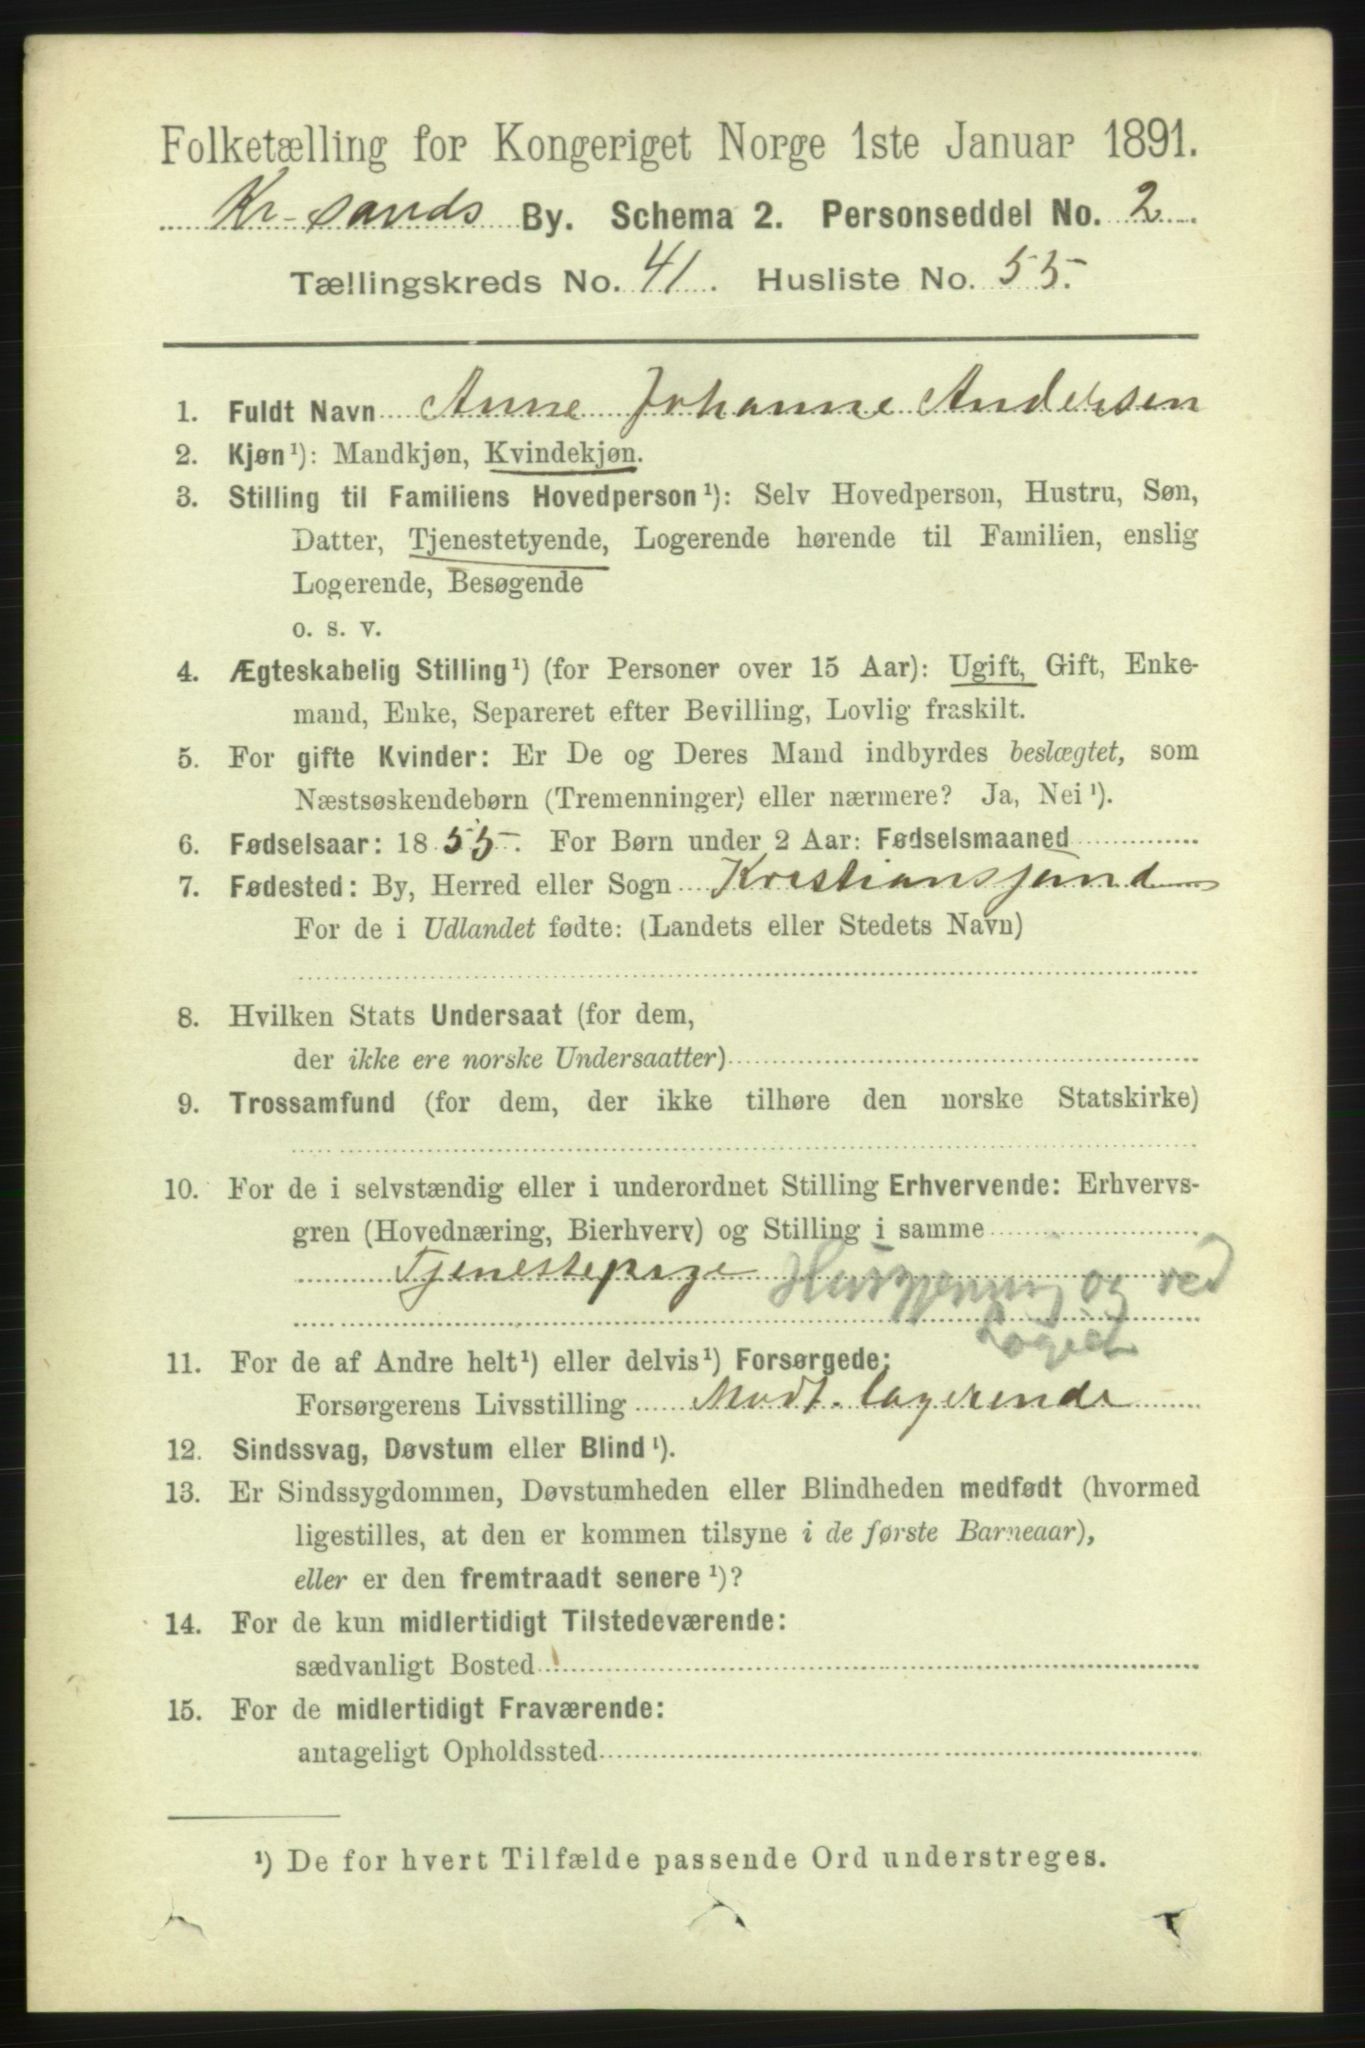 Folketælling for Kongeriget Norge 1ste Januar 1891.
Kr-sands By. Schema 2. Personseddel No. 2
Tællingskreds No. 41. Husliste No. 55.
1. Fuldt Navn Anne Johanne Andersen
2. Kjøn¹): Mandkjøn, Kvindekjøn.
3. Stilling til Familiens Hovedperson¹): Selv Hovedperson, Hustru, Søn,
Datter, Tjenestetyende, Logerende hørende til Familien, enslig
Logerende, Besøgende
o. s. v.
4. Ægteskabelig Stilling¹) (for Personer over 15 Aar): Ugift, Gift, Enke-
mand, Enke, Separeret efter Bevilling, Lovlig fraskilt.
5. For gifte Kvinder: Er De og Deres Mand indbyrdes beslægtet, som
Næstsøskendebørn (Tremenninger) eller nærmere? Ja, Nei¹).
6. Fødselsaar: 1855. For Børn under 2 Aar: Fødselsmaaned
7. Fødested: By, Herred eller Sogn Kristianssand
For de i Udlandet fødte: (Landets eller Stedets Navn)
8. Hvilken Stats Undersaat (for dem,
der ikke ere norske Undersaatter)
9. Trossamfund (for dem, der ikke tilhøre den norske Statskirke)
10. For de i selvstændig eller i underordnet Stilling Erhvervende: Erhvervs-
gren (Hovednæring, Bierhverv) og Stilling i samme
Tjenestepige Husgjerning og ved
Logied
11. For de af Andre helt¹) eller delvis¹) Forsørgede:
Forsørgerens Livsstilling Modt. logerende
12. Sindssvag, Døvstum eller Blind¹).
13. Er Sindssygdommen, Døvstumheden eller Blindheden medfødt (hvormed
ligestilles, at den er kommen tilsyne i de første Barneaar),
eller er den fremtraadt senere¹)?
14. For de kun midlertidigt Tilstedeværende:
sædvanligt Bosted
15. For de midlertidigt Fraværende:
antageligt Opholdssted
¹) De for hvert Tilfælde passende Ord understreges.